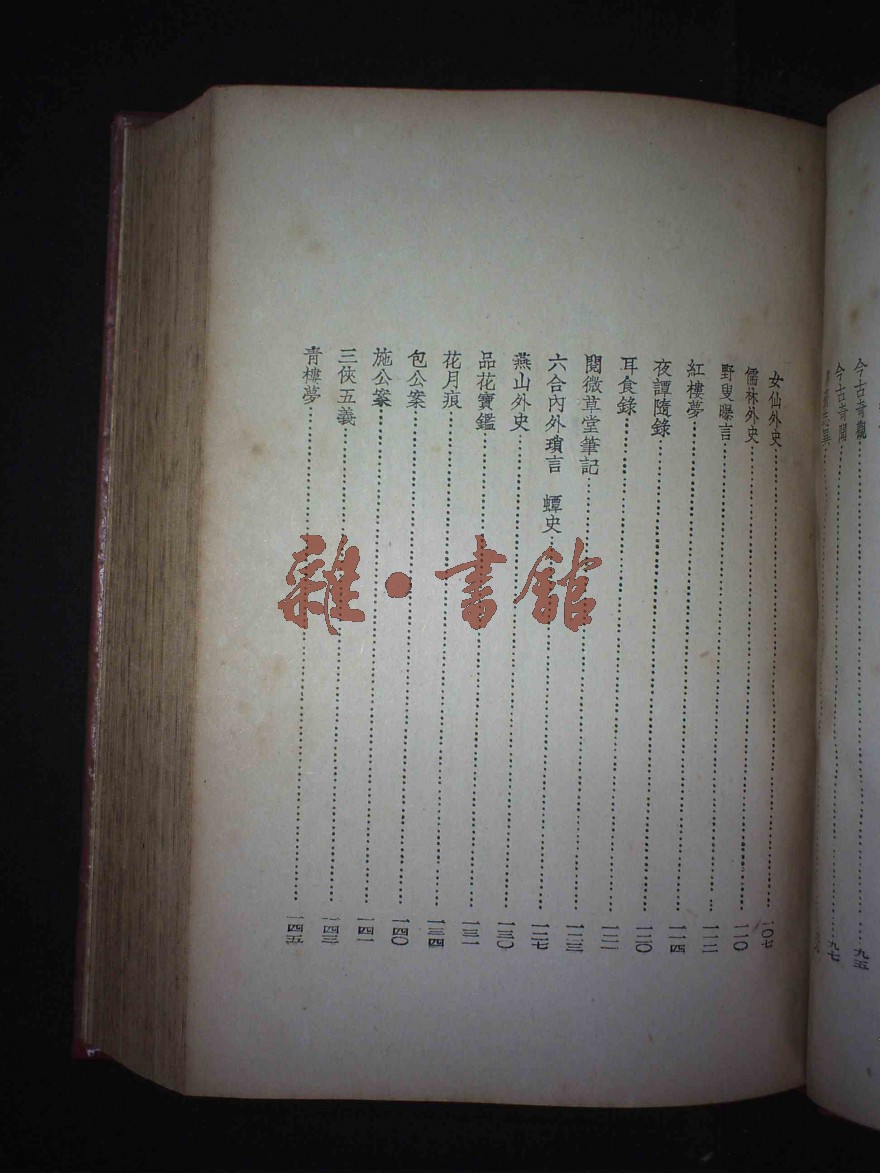 今古奇觀……九五
今古奇聞……九七
志異……
女仙外史……一〇七
儒林外史……一一〇
野叟曝言……一一二
紅樓夢……一一四
夜譚隨錄……一二〇
耳食錄……一二二
閱微草堂筆記……一二三
六合內外瑣言　蟫史……一二七
燕山外史……一三〇
品花寶鑑……一三一
花月痕……一三四
包公案……一四〇
施公案……一四一
三俠五義……一四三
青樓夢……一四五
雜·書館